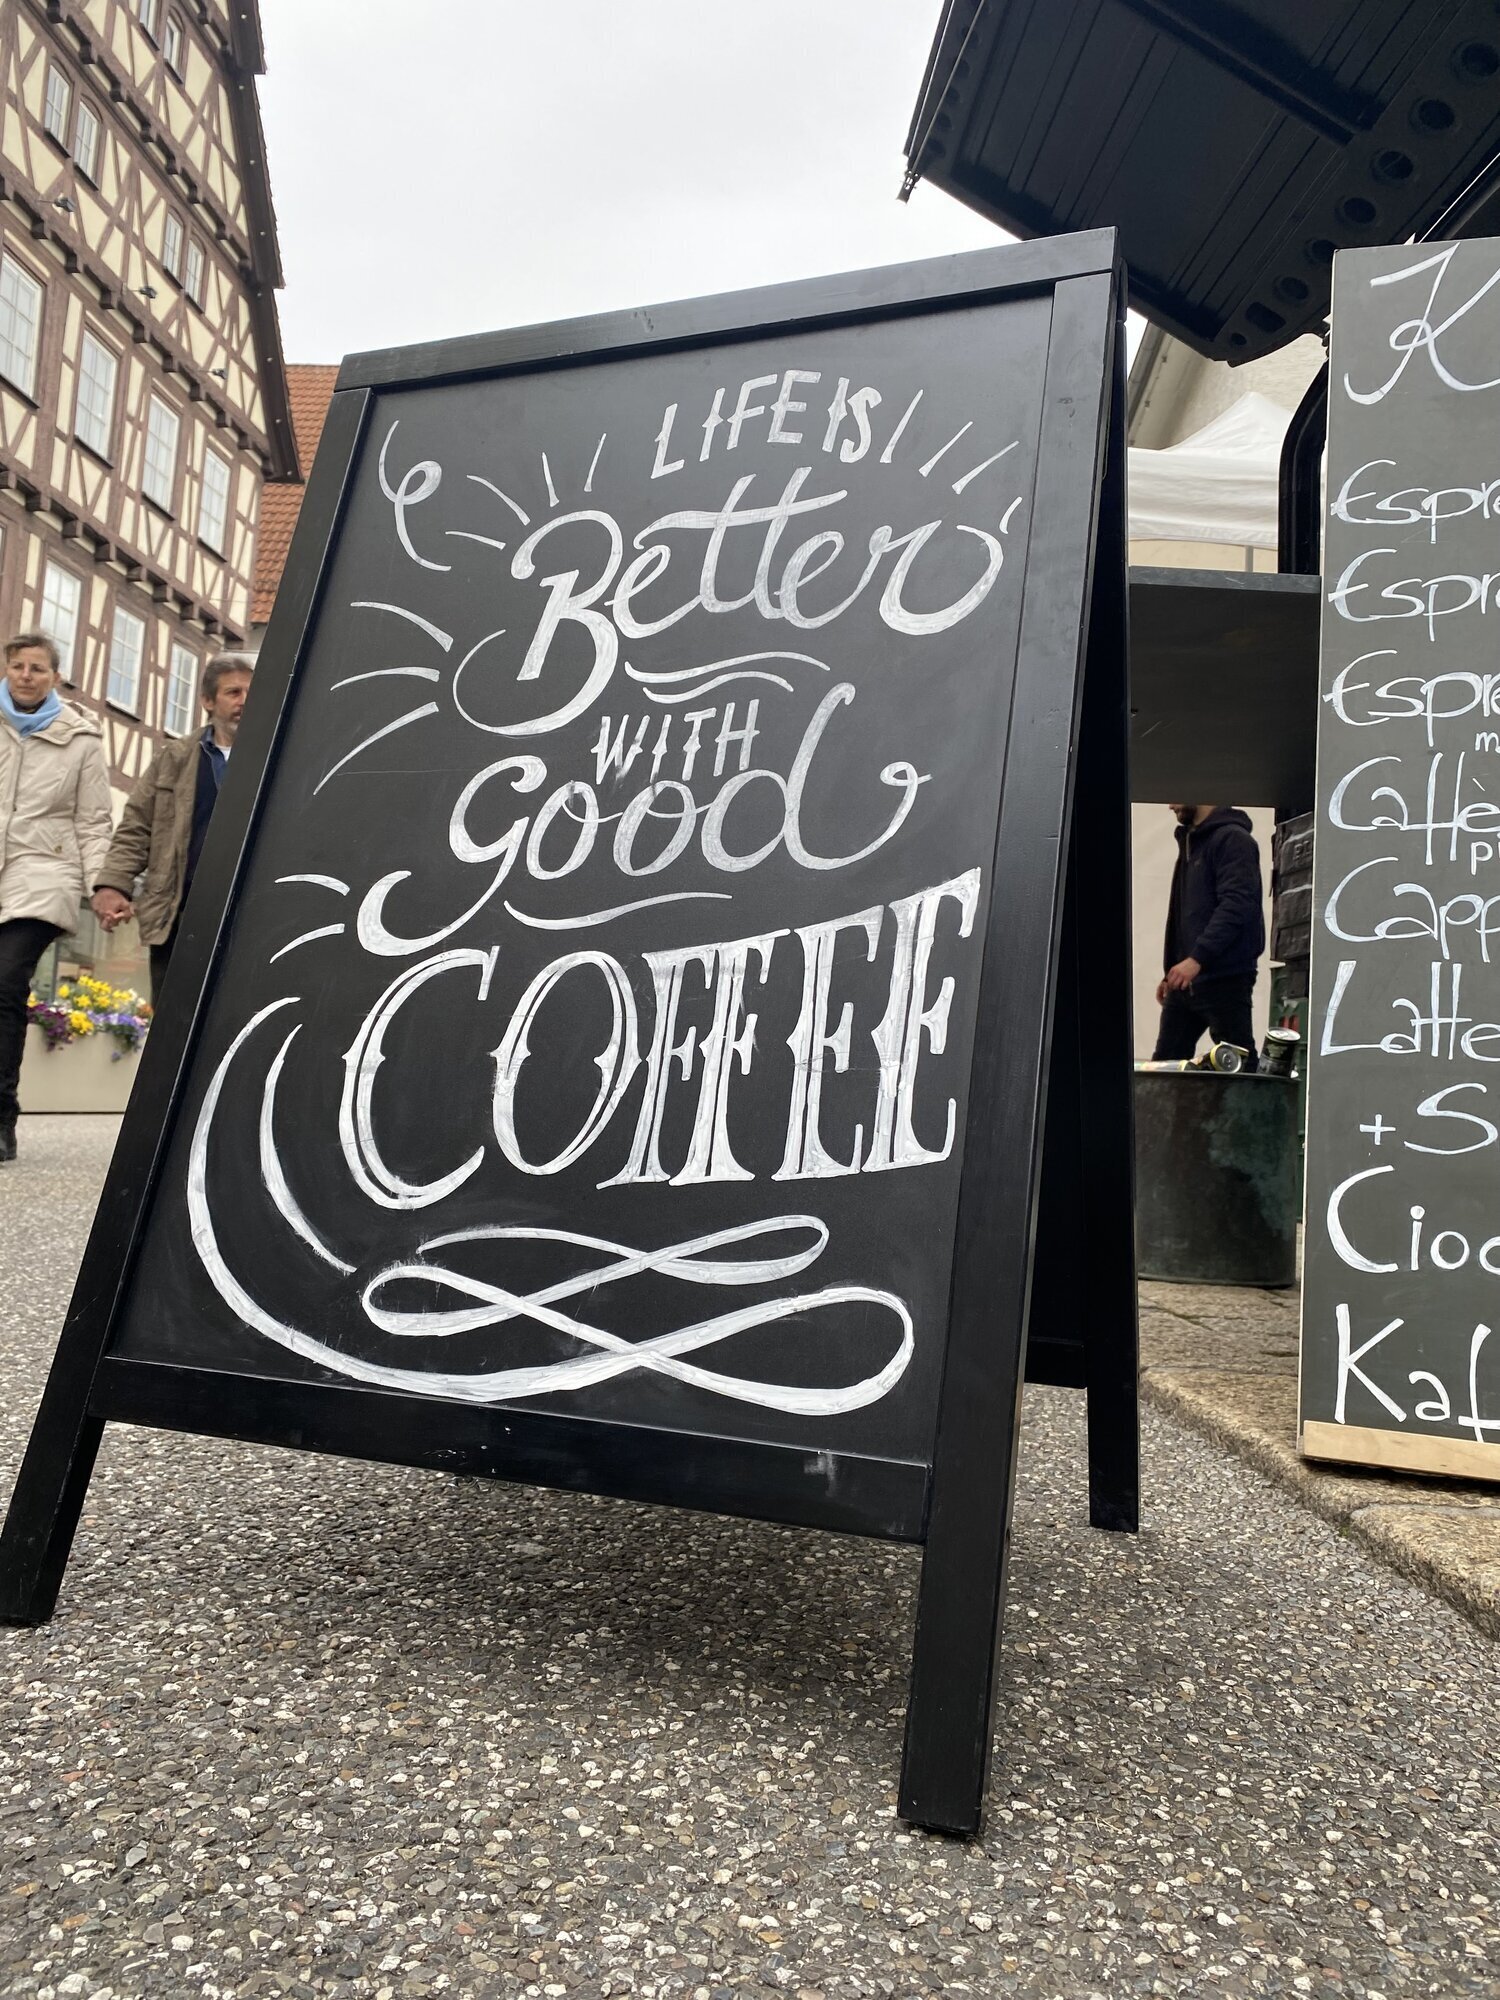 LIFE IS
Better
WITH
Good
COFFEE
K
Espre
Espre
Espre
m
Caffè
p
Capp
Latte
+ S
Cioc
Kaf